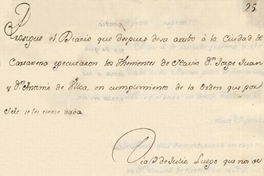 25
Prosigue el Diario que despues de su arribo â la Ciudad de
Cartagena executaron los Thenientes de Navio Dn. Jorge Juan
y Dn. Antonio de Ulloa, en cumplimiento de la Orden que por
se les tiene dada
Dia de Julio Luego que nos